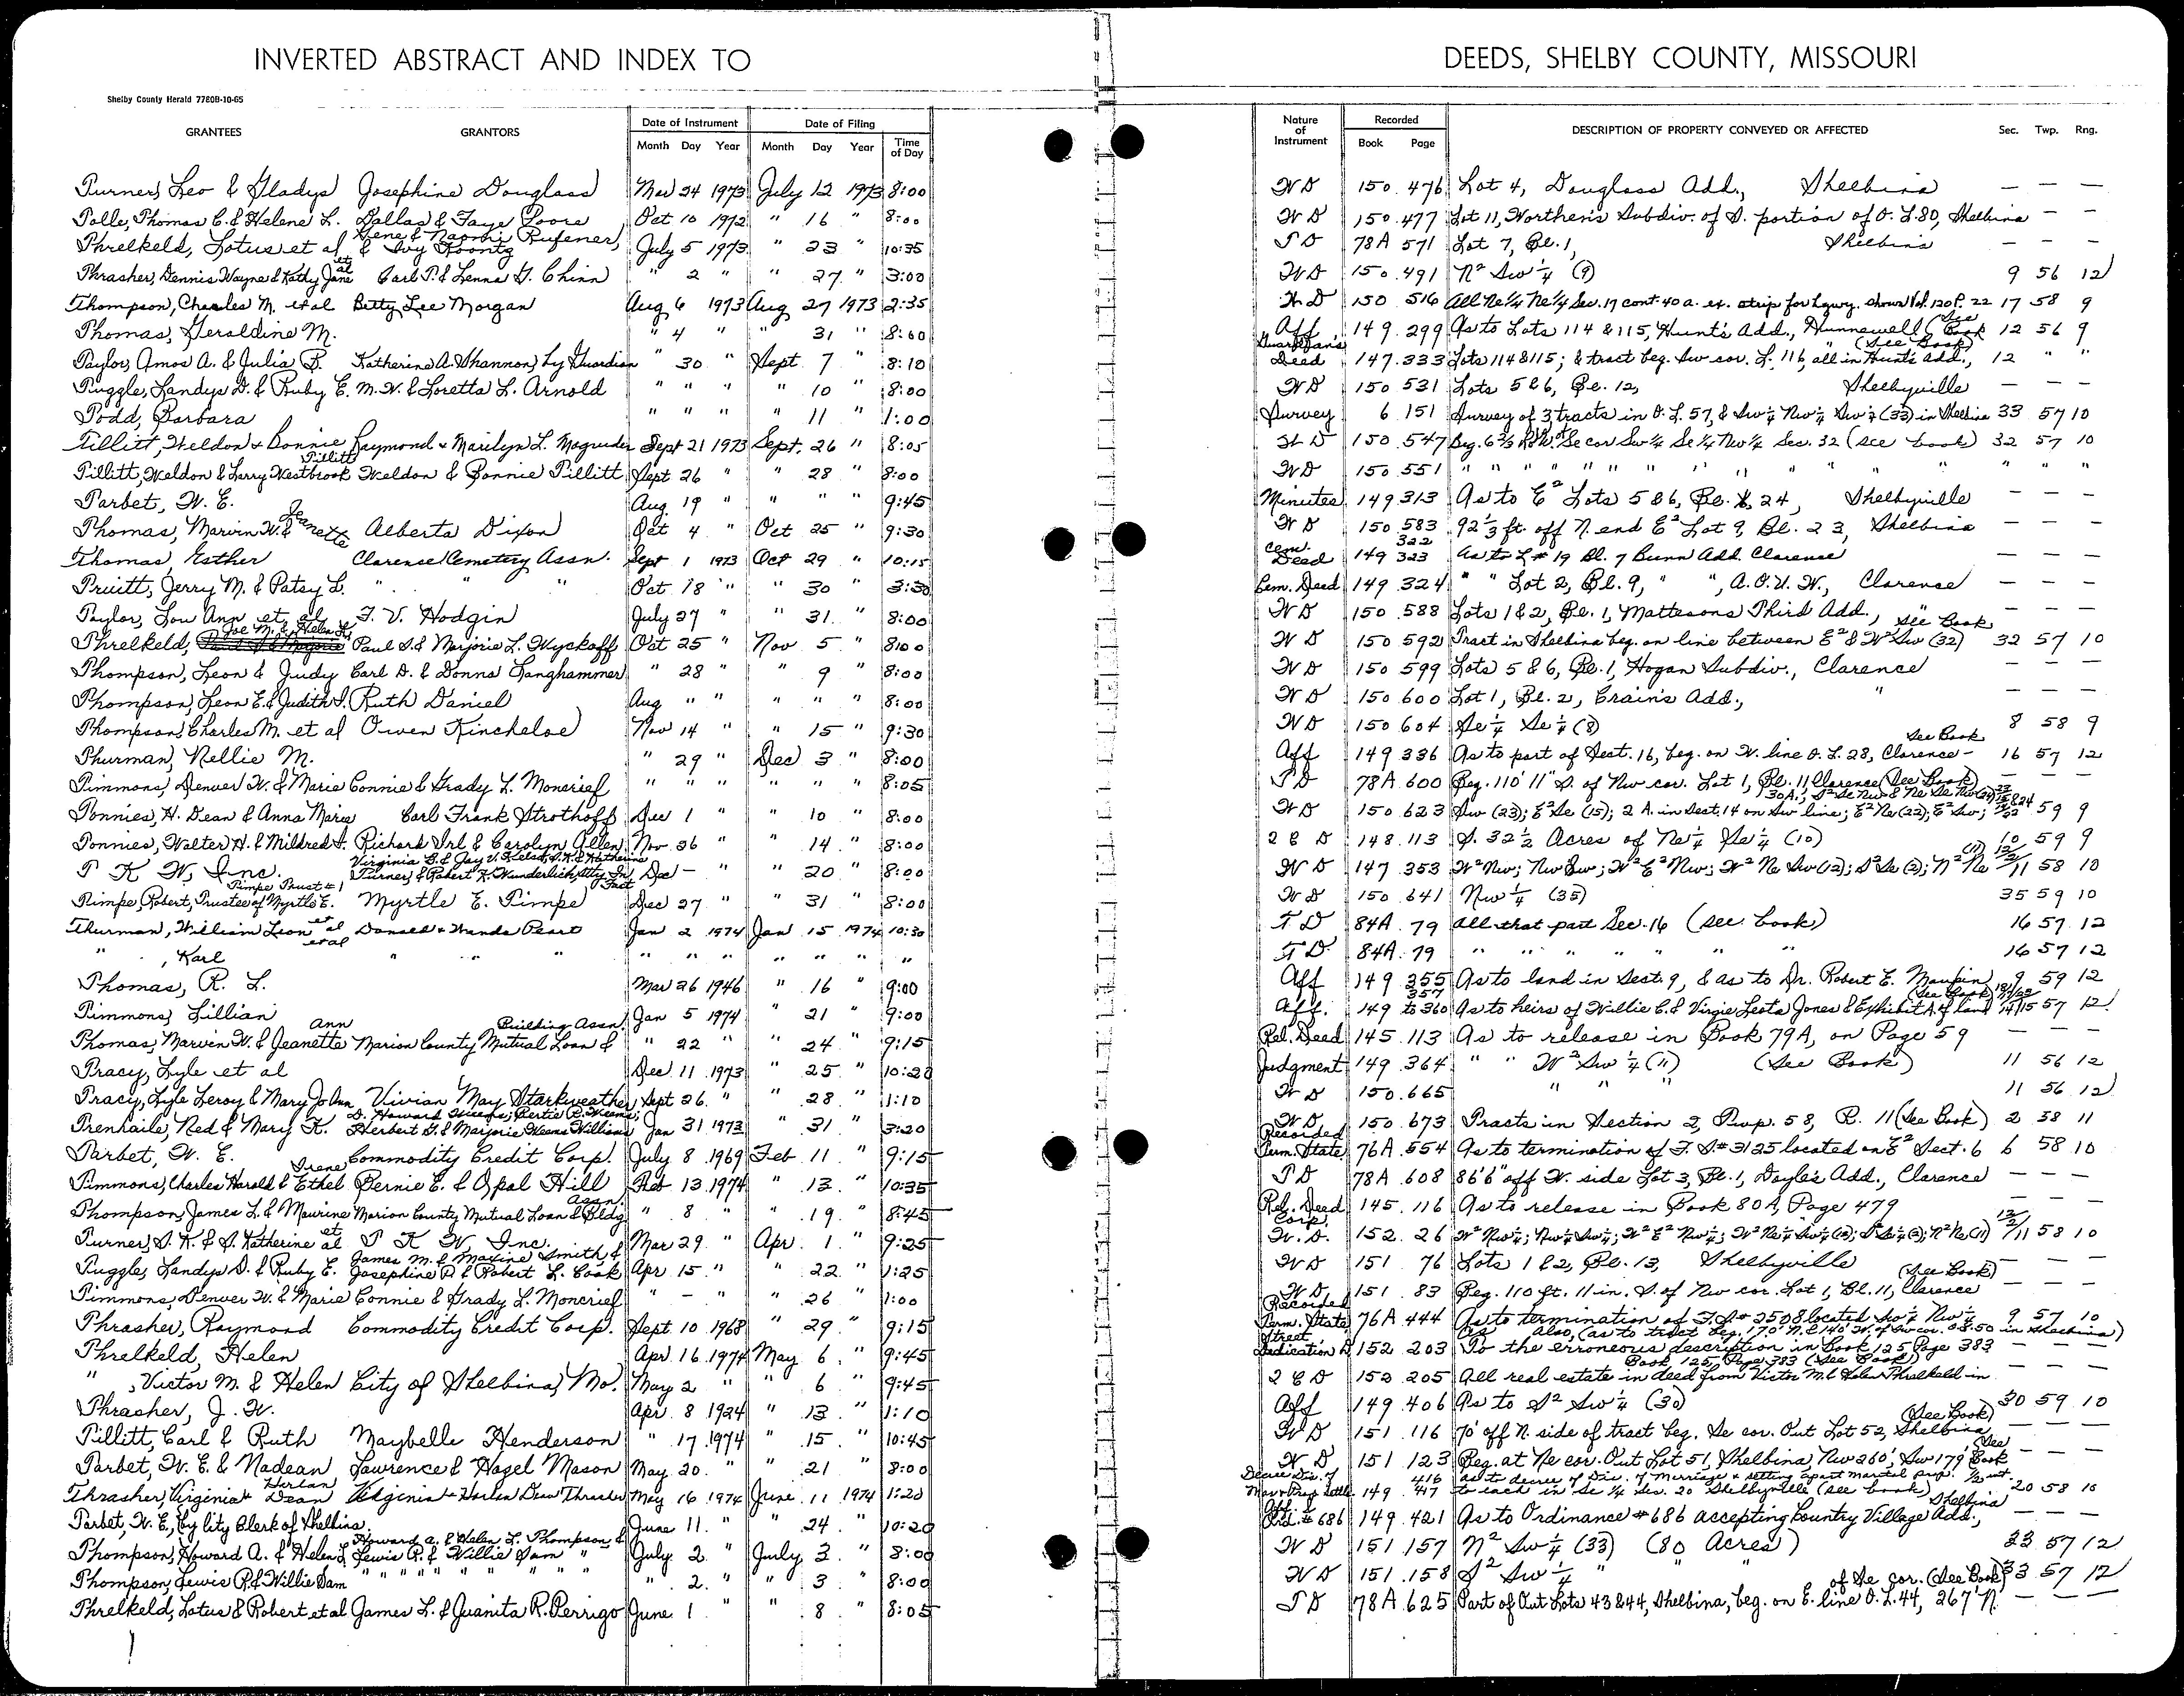 INVERTED ABSTRACT AND INDEX TO DEEDS, SHELBY COUNTY, MISSOURI
Shelby County Herald 7780B-10-65
GRANTEES GRANTORS Date of Instrument Month Day Year Date of Filing Month Day Year Time of Day Nature of Instrument Recorded Book Page DESCRIPTION OF PROPERTY CONVEYED OR AFFECTED Sec. Twp. Rng.
Turner, Leo & Gladys Josephine Douglass Mar 24 1973 July 12 1973 8:00 WD 150 476 Lot 4, Douglass Add., Shelbina — — —
Tolle, Thomas C. & Helene L. Dallas & Faye Poore Oct 10 1972 " 16 " 8:00 WD 150 477 Lot 11, Worthen's Subdiv. of S. portion of O. L. 80, Shelbina — —
Threlkeld, Lotus et al Gene & Naomi Rufener, & Ivy Koontz July 5 1973 " 23 " 10:35 TD 78A 571 Lot 7, Bl. 1, Shelbina — — —
Thrasher, Dennis Wayne & Kathy Jane et al Carl P. & Lenna G. Chinn " 2 " " 27 " 3:00 WD 150 491 N² Sw ¼ (9) 9 56 12
Thompson, Charles M. et al Betty Lee Morgan Aug 6 1973 Aug 27 1973 2:35 WD 150 516 All Ne¼ Ne¼ Sec. 17 cont. 40 a. ex. strip for hgwy. shown Vol. 120 P. 22 17 58 9
Thomas, Geraldine M. " 4 " " 31 " 8:60 Aff 149 299 As to Lots 114 & 115, Hunt's Add., Hunnewell (See Book 12 56 9
Taylor, Amos A. & Julia B. Katherine A. Shannon, by Guardian " 30 " Sept 7 " 8:10 Guardian's Deed 147 333 Lots 114 & 115; & tract beg. Sw cor. L. 116, all in Hunt's Add., " (See Book) 12 " "
Tuggle, Landys D. & Ruby E. M. W. & Loretta L. Arnold " " " " 10 " 8:00 WD 150 531 Lots 5 & 6, Bl. 12, Shelbyville — — —
Todd, Barbara " " " " 11 " 1:00 Survey 6 151 Survey of 3 tracts in O. L. 57, & Sw¼ Nw¼ Sw¼ (33) in Shelbina 33 57 10
Tillitt, Weldon & Bonnie Raymond & Marilyn L. Magruder Sept 21 1973 Sept. 26 " 8:05 WD 150 547 Beg. 6⅔ Rd. W. Se cor Sw¼ Se¼ Nw¼ Sec. 32 (see book) 32 57 10
Tillitt, Weldon & Larry Westbrook Weldon & Bonnie Tillitt Sept 26 " " 28 " 8:00 WD 150 551 " " " " " " " " " " " " "
Tarbet, W. E. Aug 19 " " " " 9:45 Minutes 149 313 As to E² Lots 5 & 6, Bl. 24, Shelbyville — — —
Thomas, Marvin W. & Jeanette Alberta Dixon Oct 4 " Oct 25 " 9:30 WD 150 583 92⅓ ft. off N. end E² Lot 9, Bl. 23, Shelbina — — —
Thomas, Esther Clarence Cemetery Assn. Sept 1 1973 Oct 29 " 10:15 Cem. Deed 149 322 323 As to L# 19 Bl. 7 Bunn Add. Clarence — — —
Pruitt, Jerry M. & Patsy L. " " " Oct 18 " " 30 " 3:30 Cem. Deed 149 324 " " Lot 2, Bl. 9, " ", A.O.U.W., Clarence — — —
Taylor, Lou Ann et al F. V. Hodgin July 27 " " 31 " 8:00 WD 150 588 Lots 1 & 2, Bl. 1, Mattesons Third Add., — — —
Threlkeld, Joe M. & Helen L. Paul S. & Marjorie L. Wyckoff Oct 25 " Nov 5 " 8:00 WD 150 592 Tract in Shelbina beg. on line between E² & W² Sw (32) See Book 32 57 10
Thompson, Leon & Judy Carl D. & Donna Langhammer " 28 " " 9 " 8:00 WD 150 599 Lots 5 & 6, Bl. 1, Hogan Subdiv., Clarence — — —
Thompson, Leon E. & Judith S. Ruth Daniel Aug " " " " " 8:00 WD 150 600 Lot 1, Bl. 2, Crain's Add., " — — —
Thompson, Charles M. et al Owen Kincheloe Nov 14 " " 15 " 9:30 WD 150 604 Se ¼ Se ¼ (8) 8 58 9
Thurman, Nellie M. " 29 " Dec 3 " 8:00 Aff 149 336 As to part of Sect. 16, beg. on W. line O. L. 28, Clarence - See Book 16 57 12
Timmons, Denver W. & Marie Connie & Grady L. Moncrief " " " " " " 8:05 TD 78A 600 Beg. 110' 11" S. of Nw cor. Lot 1, Bl. 11 Clarence (See Book) — — —
Tonnies, H. Dean & Anna Marie Carl Frank Strothoff Dec 1 " " 10 " 8:00 WD 150 623 Sw (23); E² Se (15); 2 A. in Sect. 14 on Sw line; E² Ne (22); E² Sw; 59 9
Tonnies, Walter H. & Mildred S. Richard Irl & Carolyn Allen Nov. 26 " " 14 " 8:00 2 E D 148 113 S. 32½ Acres of Ne¼ Se¼ (10) 10 59 9
T K W, Inc. Virginia B. & Jay V. Kelso, S. K. & Katherine Turner & Robert K. Wunderlich, Atty. In Fact Dec — " " 20 " 8:00 WD 147 353 W² Nw; Nw Sw; W² E² Nw; W² Ne Sw (12); S² Se (2); N² Ne (11) 12/2/11 58 10
Timpe, Robert, Trustee of Myrtle E. Timpe Trust #1 Myrtle E. Timpe Dec 27 " " 31 " 8:00 WD 150 641 Nw ¼ (35) 35 59 10
Thurman, William Leon et al Donald & Wanda Peart Jan 2 1974 Jan 15 1974 10:30 T. D 84A 79 All that part Sec. 16 (see book) 16 57 12
" , Karl et al " " " " " " " " " " T. D. 84A 79 " " " " " " 16 57 12
Thomas, R. L. Mar 26 1946 " 16 " 9:00 Aff 149 355 As to land in Sect. 9, & as to Dr. Robert E. Maupin 9 59 12
Timmons, Lillian Jan 5 1974 " 21 " 9:00 Aff. 149 357 to 360 As to heirs of Willie C. & Virgie Leota Jones & Exhibit A of land (See Book) 57 12
Thomas, Marvin W. & Jeanette Ann Marion County Mutual Loan & Building Assn. " 22 " " 24 " 9:15 Rel. Deed 145 113 As to release in Book 79A, on Page 59 — — —
Tracy, Lyle et al Dec 11 1973 " 25 " 10:20 Judgment 149 364 " " W² Sw ¼ (11) (See Book) 11 56 12
Tracy, Lyle Leroy & Mary Jo Ann Vivian May Starkweather Sept 26 " " 28 " 1:10 WD 150 665 " " " 11 56 12
Trenhaile, Ned & Mary K. D. Howard Weems; Bertie R. Weems; Herbert G. & Marjorie Weems Williams Jan 31 1973 " 31 " 3:20 WD 150 673 Tracts in Section 2, Twp. 58, R. 11 (See Book) 2 38 11
Tarbet, W. E. Commodity Credit Corp. July 8 1969 Feb 11 " 9:15 Recorded Term. State 76A 554 As to termination of F. S# 3125 located on E² Sect. 6 6 58 10
Timmons, Charles Harold & Ethel Irene Bernie E. & Opal Hill Feb 13 1974 " 13 " 10:35 TD 78A 608 86'6" off W. side Lot 3, Bl. 1, Doyle's Add., Clarence — — —
Thompson, James L. & Maurine Marion County Mutual Loan & Bldg Assn " 8 " " 19 " 8:45 Rel. Deed 145 116 As to release in Book 80A, Page 479 — — —
Turner, S. K. & S. Katherine et al T K W Inc. Mar 29 " Apr. 1 " 9:25 Corp. W. D. 152 26 W² Nw¼; Nw¼ Sw¼; W² E² Nw¼; W² Ne¼ Sw¼ (12); S² Se¼ (2); N² Ne (11) 12/2/11 58 10
Tuggle, Landys D. & Ruby E. James M. & Maxine Smith & Josephine D. & Robert L. Cook Apr 15 " " 22 " 1:25 WD 151 76 Lots 1 & 2, Bl. 13, Shelbyville — — —
Timmons, Denver W. & Marie Connie & Grady L. Moncrief " — " " 26 " 1:00 WD 151 83 Beg. 110 ft. 11 in. S. of Nw cor. Lot 1, Bl. 11, Clarence (See Book) — — —
Thrasher, Raymond Commodity Credit Corp. Sept. 10 1968 " 29 " 9:15 Recorded Term. State 76A 444 As to termination of F. S# 2508 located Sw¼ Nw¼ 9 57 10
Threlkeld, Helen Apr. 16 1974 May 6 " 9:45 Street Dedication 152 203 Also, (as to tract beg. 170' N. & 140' W. of Sw cor. O. L. 50 in Shelbina) To the erroneous description in Book 125 Page 383 — — —
" , Victor M. & Helen City of Shelbina, Mo. May 2 " " 6 " 9:45 2 E D 152 205 All real estate in deed from Victor M. & Helen Threlkeld in Book 125, Page 383 (See Book) — — —
Thrasher, J. W. Apr. 8 1924 " 13 " 1:10 Aff 149 406 As to S² Sw ¼ (30) 30 59 10
Tillitt, Carl & Ruth Maybelle Henderson " 17 1974 " 15 " 10:45 WD 151 116 70' off N. side of tract beg. Se cor. Out Lot 52, Shelbina (See Book) — — —
Tarbet, W. E. & Nadean Lawrence & Hazel Mason May 20 " " 21 " 8:00 WD 151 123 Beg. at Ne cor. Out Lot 51, Shelbina, Nw 260', Sw 179' (See Book — — —
Thrasher, Virginia & Harlan Dean Virginia & Harlan Dean Thrasher May 16 1974 June 11 1974 1:20 Decree Div. of Mar. & Prop. Settle. 149 416 417 As to decree of Div. of Marriage & setting apart marital prop. ½ int. to each in Se ¼ Sec. 20 Shelbyville (see book) 20 58 10
Tarbet, W. E., by City Clerk of Shelbina June 11 " " 24 " 10:20 Aff. & Ord. # 686 149 421 As to Ordinance # 686 accepting Country Village Add., Shelbina — — —
Thompson, Howard A. & Helen L. Howard A. & Helen L. Thompson & Lewis P. & Willie Sam " July 2 " July 3 " 8:00 WD 151 157 N² Sw ¼ (33) (80 Acres) 33 57 12
Thompson, Lewis P. & Willie Sam " " " " " " " " 2 " " 3 " 8:00 WD 151 158 S² Sw ¼ " 33 57 12
Threlkeld, Lotus & Robert et al James L. & Juanita R. Perrigo June 1 " " 8 " 8:05 TD 78A 625 Part of Out Lots 43 & 44, Shelbina, beg. on E. line O. L. 44, 267' N. of Se cor. (See Book) — — —